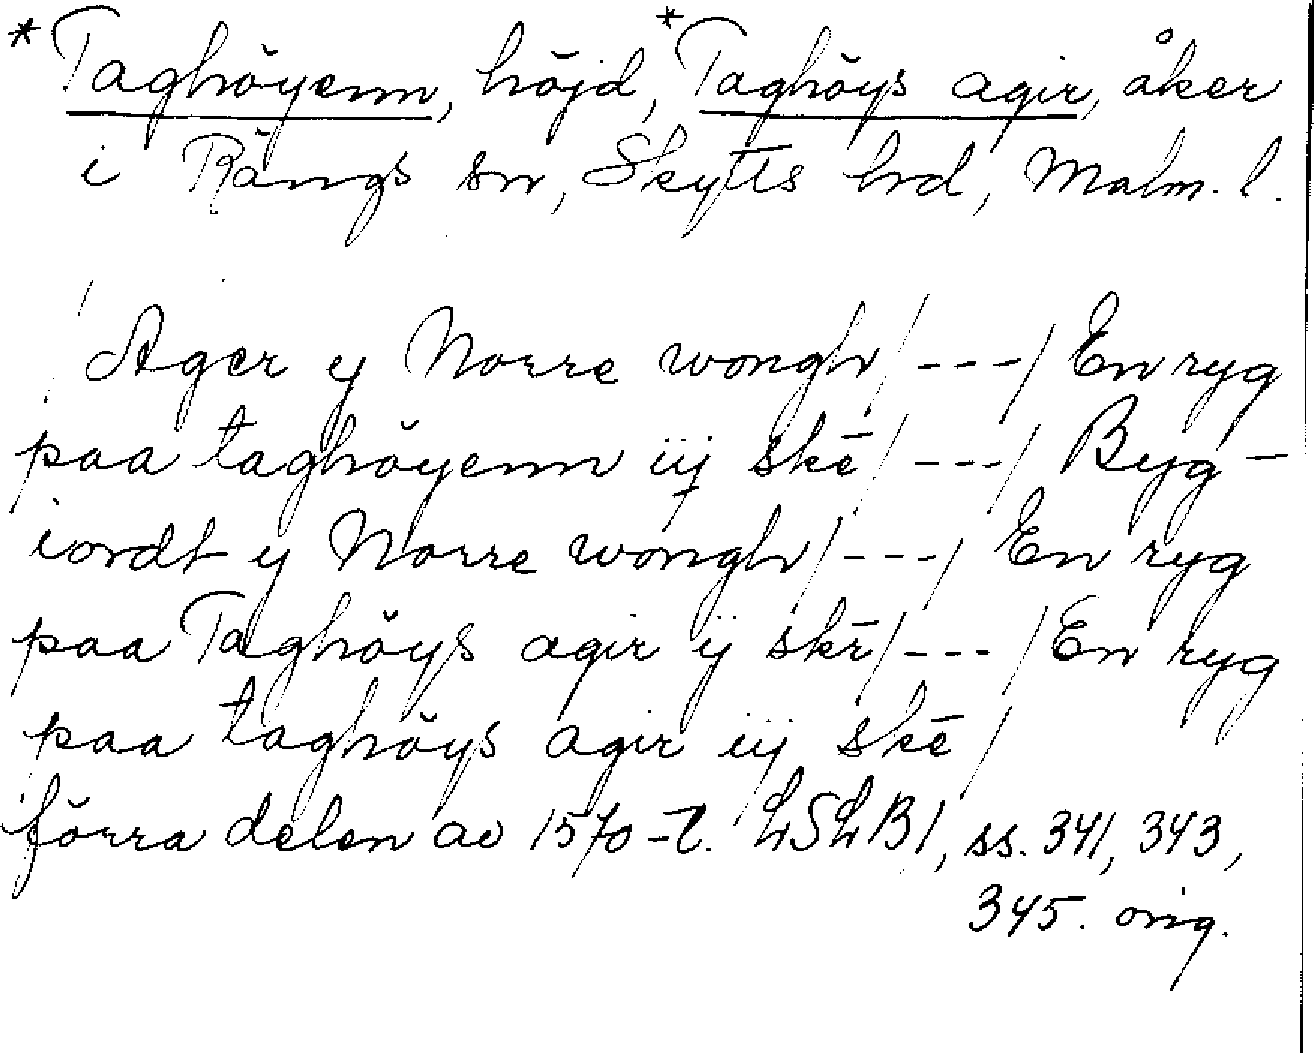 *Taghöyenn, höjd, *Taghöys agir, åker
i Rängs sn, Skytts hd, Malm. l.
Ager y Norre wongh / --- / En ryg
paa taghöyenn iij skē / --- / Byg-
iordt y Norre wongh / --- / En ryg
paa Taghöys agir ij skē / --- / En ryg
paa taghöys agir iij skē /
förra delen av 1570-t. LSLB1, ss. 341, 343,
345. orig.